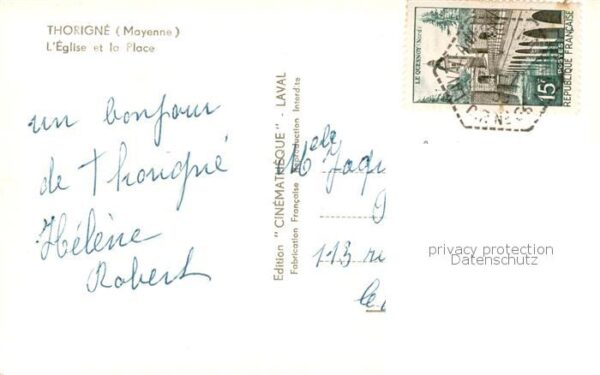 THORIGNÉ (Mayenne)
L'Église et la Place
un bonjour
de Thorigné
Hélène
Robert
Edition "CINÉMATHÈQUE" - LAVAL
Fabrication Française Reproduction Interdite
LE QUESNOY (Nord)
15F
POSTES
REPUBLIQUE FRANÇAISE
Melle Jaq
113 r
privacy protection
Datenschutz